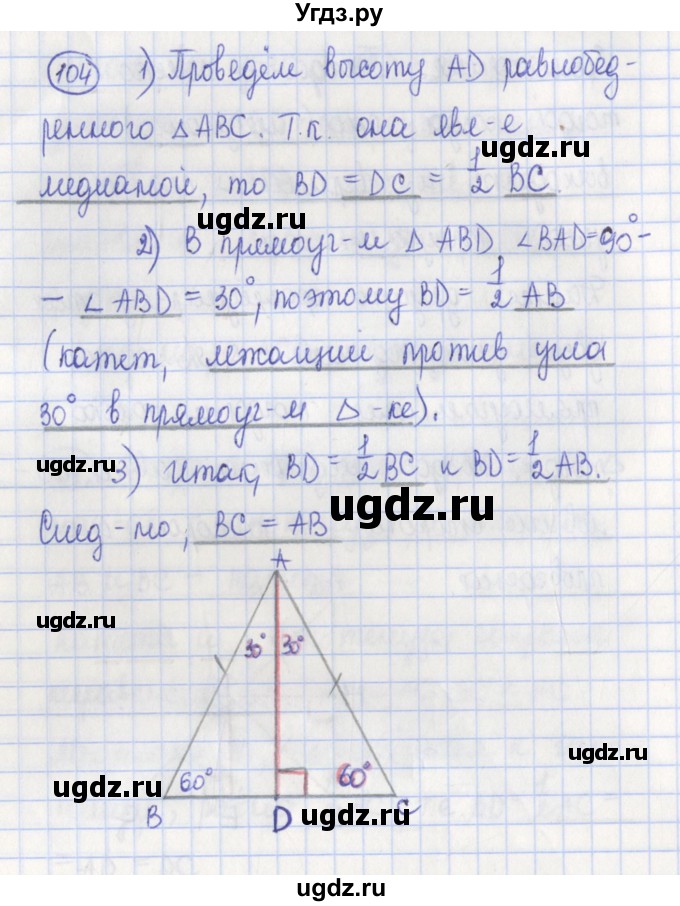 Угдз.ру
104 1) Проведём высоту AD равнобед-
ренного △ABC. Т.к. она явл-е
медианой, то BD = DC = 1/2 BC.
ugdz.ru
ugdz.ru
2) В прямоуг-м △ ABD ∠BAD=90°-
- ∠ABD = 30°, поэтому BD = 1/2 AB
ugdz.ru
(катет, лежащий против угла
30° в прямоуг-м △-ке).
ugdz.ru
3) Итак, BD = 1/2 BC и BD = 1/2 AB.
ugdz.ru
След-но, BC = AB
A
ugdz.ru
ugdz.ru
30° 30°
ugdz.ru
ugdz.ru
60° 60°
B D C
ugdz.ru
ugdz.ru